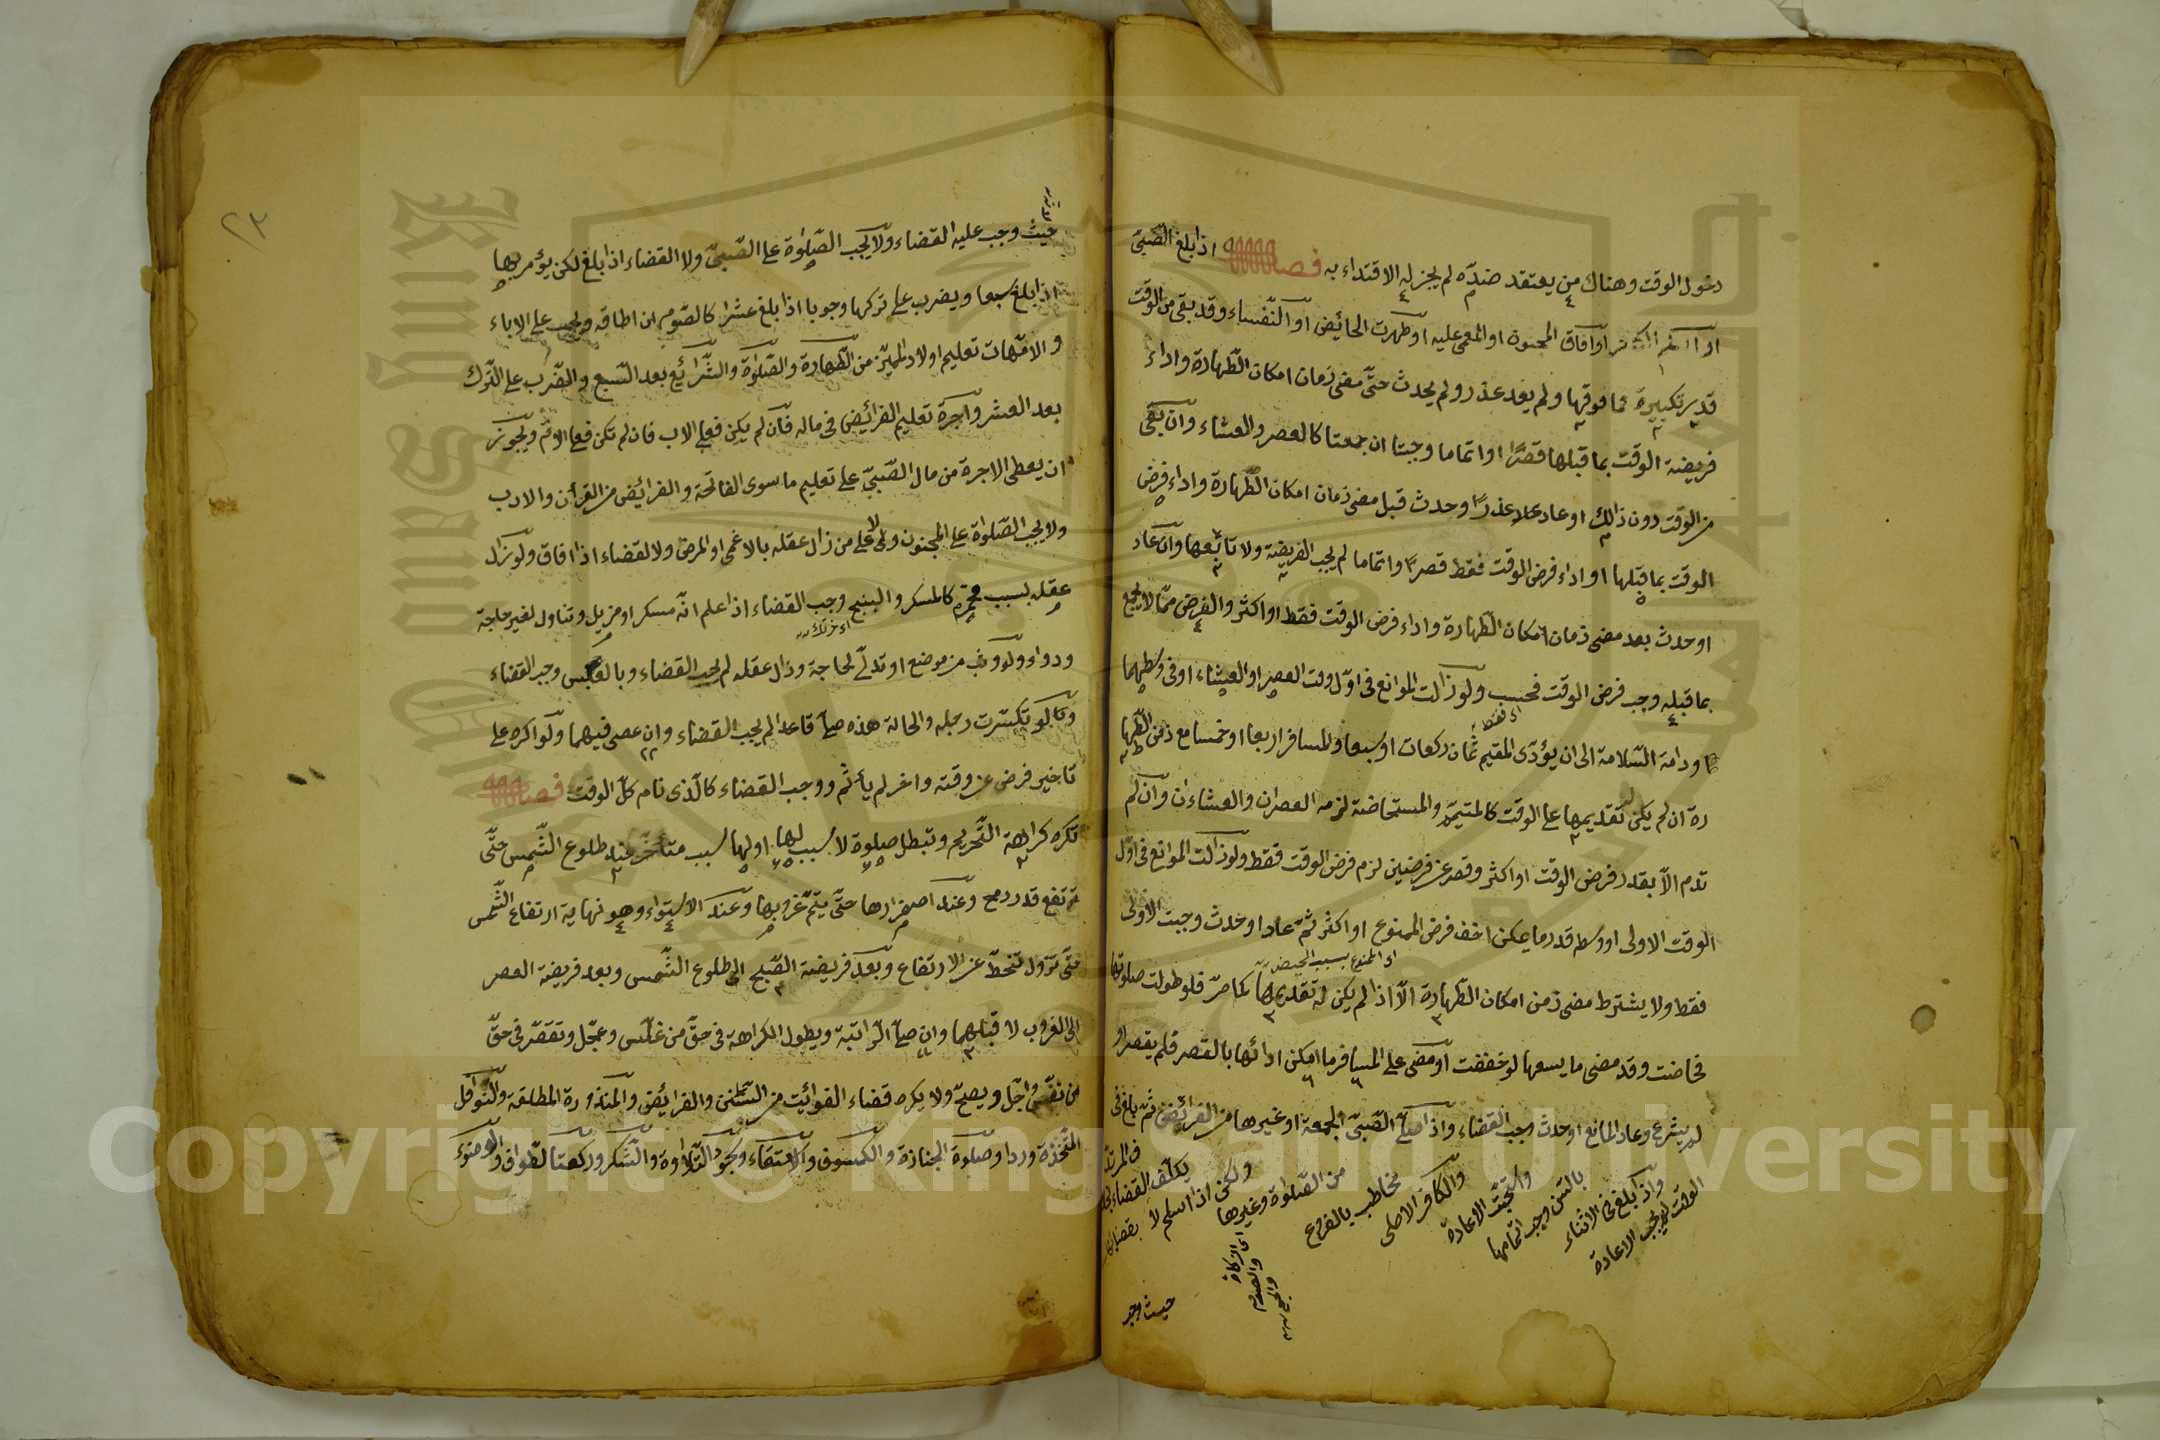 دخول الوقت وهناك من يعتقد ضده لم يجز له الاقتداء به فصل اذا بلغ الصّبىّ
او افاق المجنون او المغمى عليه او طهرت الحائض او النّفساء وقد بقى من الوقت
قدر تكبيرة فما فوقها ولم يعد عذر ولم يحدث حتّى مضى زمان امكان الطّهارة واداء
فريضة الوقت بما قبلها قصرًا او اتماما وجبتا ان جمعتا كالعصر والعشاء وان بقى
من الوقت دون ذالك او عاد عذرًا وحدث قبل مضى زمان امكان الطّهارة واداء فرض
الوقت بما قبلها او اداء فرض الوقت فقط قصرًا واتماما لم يجب الفريضة ولا تابعها وان عاد
او حدث بعد مضى زمان امكان الطّهارة واداء فرض الوقت فقط او اكثر والفرض ممّا لا يجمع
بما قبله وجب فرض الوقت فحسب ولو زالت الموانع فى اوّل وقت العصر او العشاء او فى وسطهما
اى فقط
ودامة السّلامة الى ان يؤدّى المقيم ثمان ركعات او سبعا والمسافر اربعا او خمسا مع زمن الطّها
رة ان لم يكن تقديمها على الوقت كالمتيمّم والمستحاضة لزمه العصران والعشاءان وان لم
تدم الّا بقدر فرض الوقت او اكثر وقصر عن فرضين لزم فرض الوقت فقط ولو زالت الموانع فى اوّل
الوقت الاولى او وسطه قدر ما يمكن اخف فرض الممنوع او اكثر ثمّ عاد او حدث وجبت الاولى
اى الممنوع بسبب الحيض
فقط ولا يشترط مضى زمن امكان الطّهارة الّا اذا لم يكن له تقديمها كما مرّ فلو طولت صلوتها
فحاضت وقد مضى ما يسعها لو خففت او مضى على المسافر ما امكن ادائها بالقصر فلم يقصر او
لم يشرع وعاد المانع او حدث وجب القضاء واذا صلّى الصّبىّ الجمعة او غيرها من الفرائض ثمّ بلغ فى
الوقت لم يجب الاعادة
واذا بلغ فى الاثناء
بالسّن وجب اتمامها
واستحبّت الاعادة
والكافر الاصلى
مخاطب بالفروع
من الصّلوة وغيرها
ولكن اذا اسلم لا
يكلّف القضاء
اى الزكاة
والصوم
والحج
حيث وجب
٢٣
حيث وجب عليه القضاء ولا يجب الصّلوة على الصّبىّ ولا القضاء اذا بلغ لكن يؤمر بها
اذا بلغ سبعا ويضرب على تركها وجوبا اذا بلغ عشرا كالصّوم ان اطاقه ويجب على الاباء
والامّهات تعليم اولاد المميّز من الطّهارة والصّلوة والشّرائع بعد السّبع والضّرب على التّرك
بعد العشر واجرة تعليم الفرائض فى ماله فان لم يكن فعلى الاب فان لم تكن فعلى الامّ ويجوز
ان يعطى الاجرة من مال الصّبىّ على تعليم ما سوى الفاتحة والفرائض من القرأن والادب
ولا يجب الصّلوة على المجنون ولا على من زال عقله بالاغمى او المرض ولا لقضاء اذا افاق ولو زال
عقله بسبب محرّم كالمسكر والبنج وجب القضاء اذا علم انّه مسكر او مزيل وتناول لغير حاجة
ودواء ولو وثب من موضع او تدلّى لحاجة وزال عقله لم يجب القضاء وبالعكس وجب القضاء
وكما لو تكسّرت رجله والحالة هذه صلّى قاعدا لم يجب القضاء وان عصى فيهما ولو اكره على
تاخير فرض عن وقته واخر لم يأثم ووجب القضاء كالّذى نام كلّ الوقت فصل
تكره كراهة التّحريم وتبطل صلوة لا سبب لها او لها سبب متأخّر عند طلوع الشّمس حتّى
ترتفع قدر رمح وعند اصفرارها حتّى يتمّ غروبها وعند الاستواء وهو نهاية ارتفاع الشّمس
حتّى تزول تنحطّ عن الارتفاع وبعد فريضة الصّبح الى طلوع الشّمس وبعد فريضة العصر
الى الغروب لا قبلهما وان صلّى الرّاتبة ويطول الكراهة فى حقّ من غلّس وعجّل وتقصّر فى حقّ
من نفّس واجّل ويصحّ ولا يكره قضاء الفوائت من السّنن والفرائض والمنذورة المطلقة والنّوافل
المتّخذة وردا وصلوة الجنازة والكسوف والاستسقاء وسجود التّلاوة والشّكر وركعتا الطّواف والوضوء